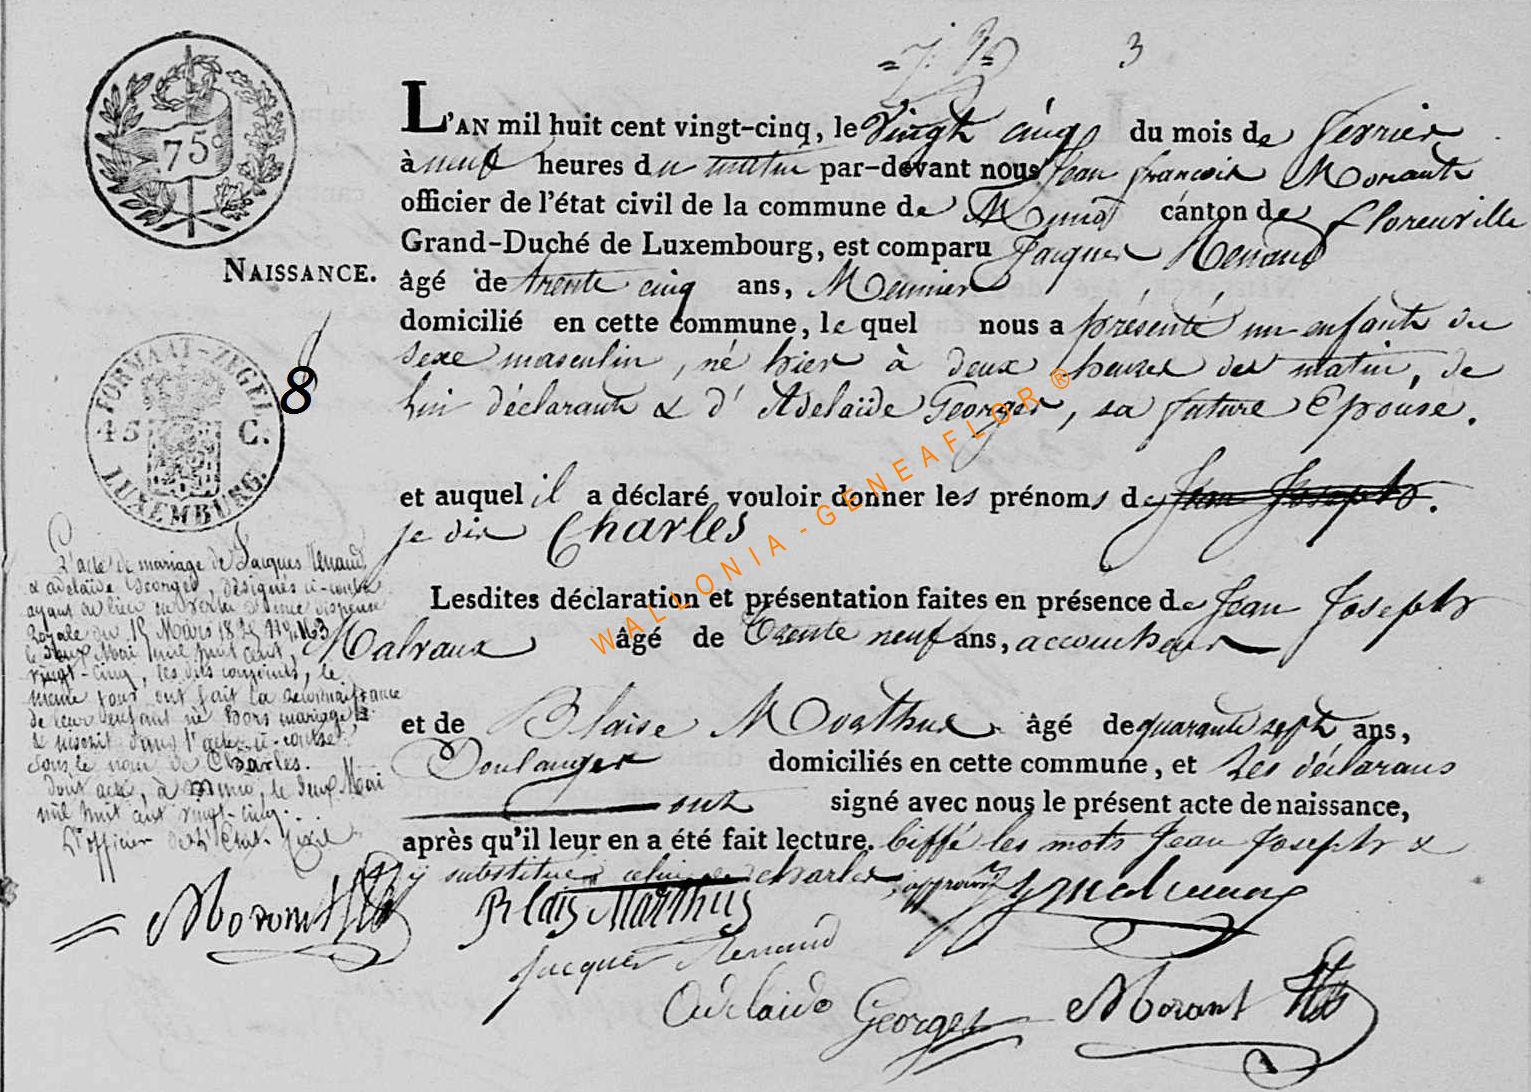 3
75c
L'AN mil huit cent vingt-cinq, le Vingt cinq du mois de fevrier
à neuf heures du matin par-devant nous Jean françois Morant
officier de l'état civil de la commune de Muno canton de florenville
Grand-Duché de Luxembourg, est comparu Jacques Renaud
NAISSANCE.
âgé de trente cinq ans, Meunier
domicilié en cette commune, le quel nous a présenté un enfant du
sexe masculin, né hier à deux heures du matin, de
lui déclarant & d'Adelaïde Georges, sa future Epouse.
FORMAAT-ZEGEL
45 C.
LUXEMBURG.
8
et auquel il a déclaré vouloir donner les prénoms de Jean Joseph.
je dis Charles
WALLONIA-GENEAFLOR®
Lesdites déclaration et présentation faites en présence de Jean Joseph
Malvaux âgé de Trente neuf ans, accoucheur
et de Blaise Marthus âgé de quarante sept ans,
Boulanger domiciliés en cette commune, et les déclarans
ont signé avec nous le présent acte de naissance,
après qu'il leur en a été fait lecture. biffé les mots Jean Joseph &
y substitué celui de charles, approuvé
L'acte de mariage de Jacques Renaud
& adelaïde Georges, désignés ci-contre
ayant eu lieu en vertu d'une dispense
Royale du 15 Mars 1825 N° 163
le deux Mai mil huit cent
vingt-cinq, les dits conjoints, le
même jour ont fait la reconnaissance
de leur enfant né hors mariage &
inscrit dans l'acte ci-contre
sous le nom de Charles.
dont acte, à Muno, le deux Mai
mil huit cent vingt-cinq.
L'officier de l'Etat-Civil
Morant
Blais Marthus
Jacques Renaud
Adelaide Georges
Morant